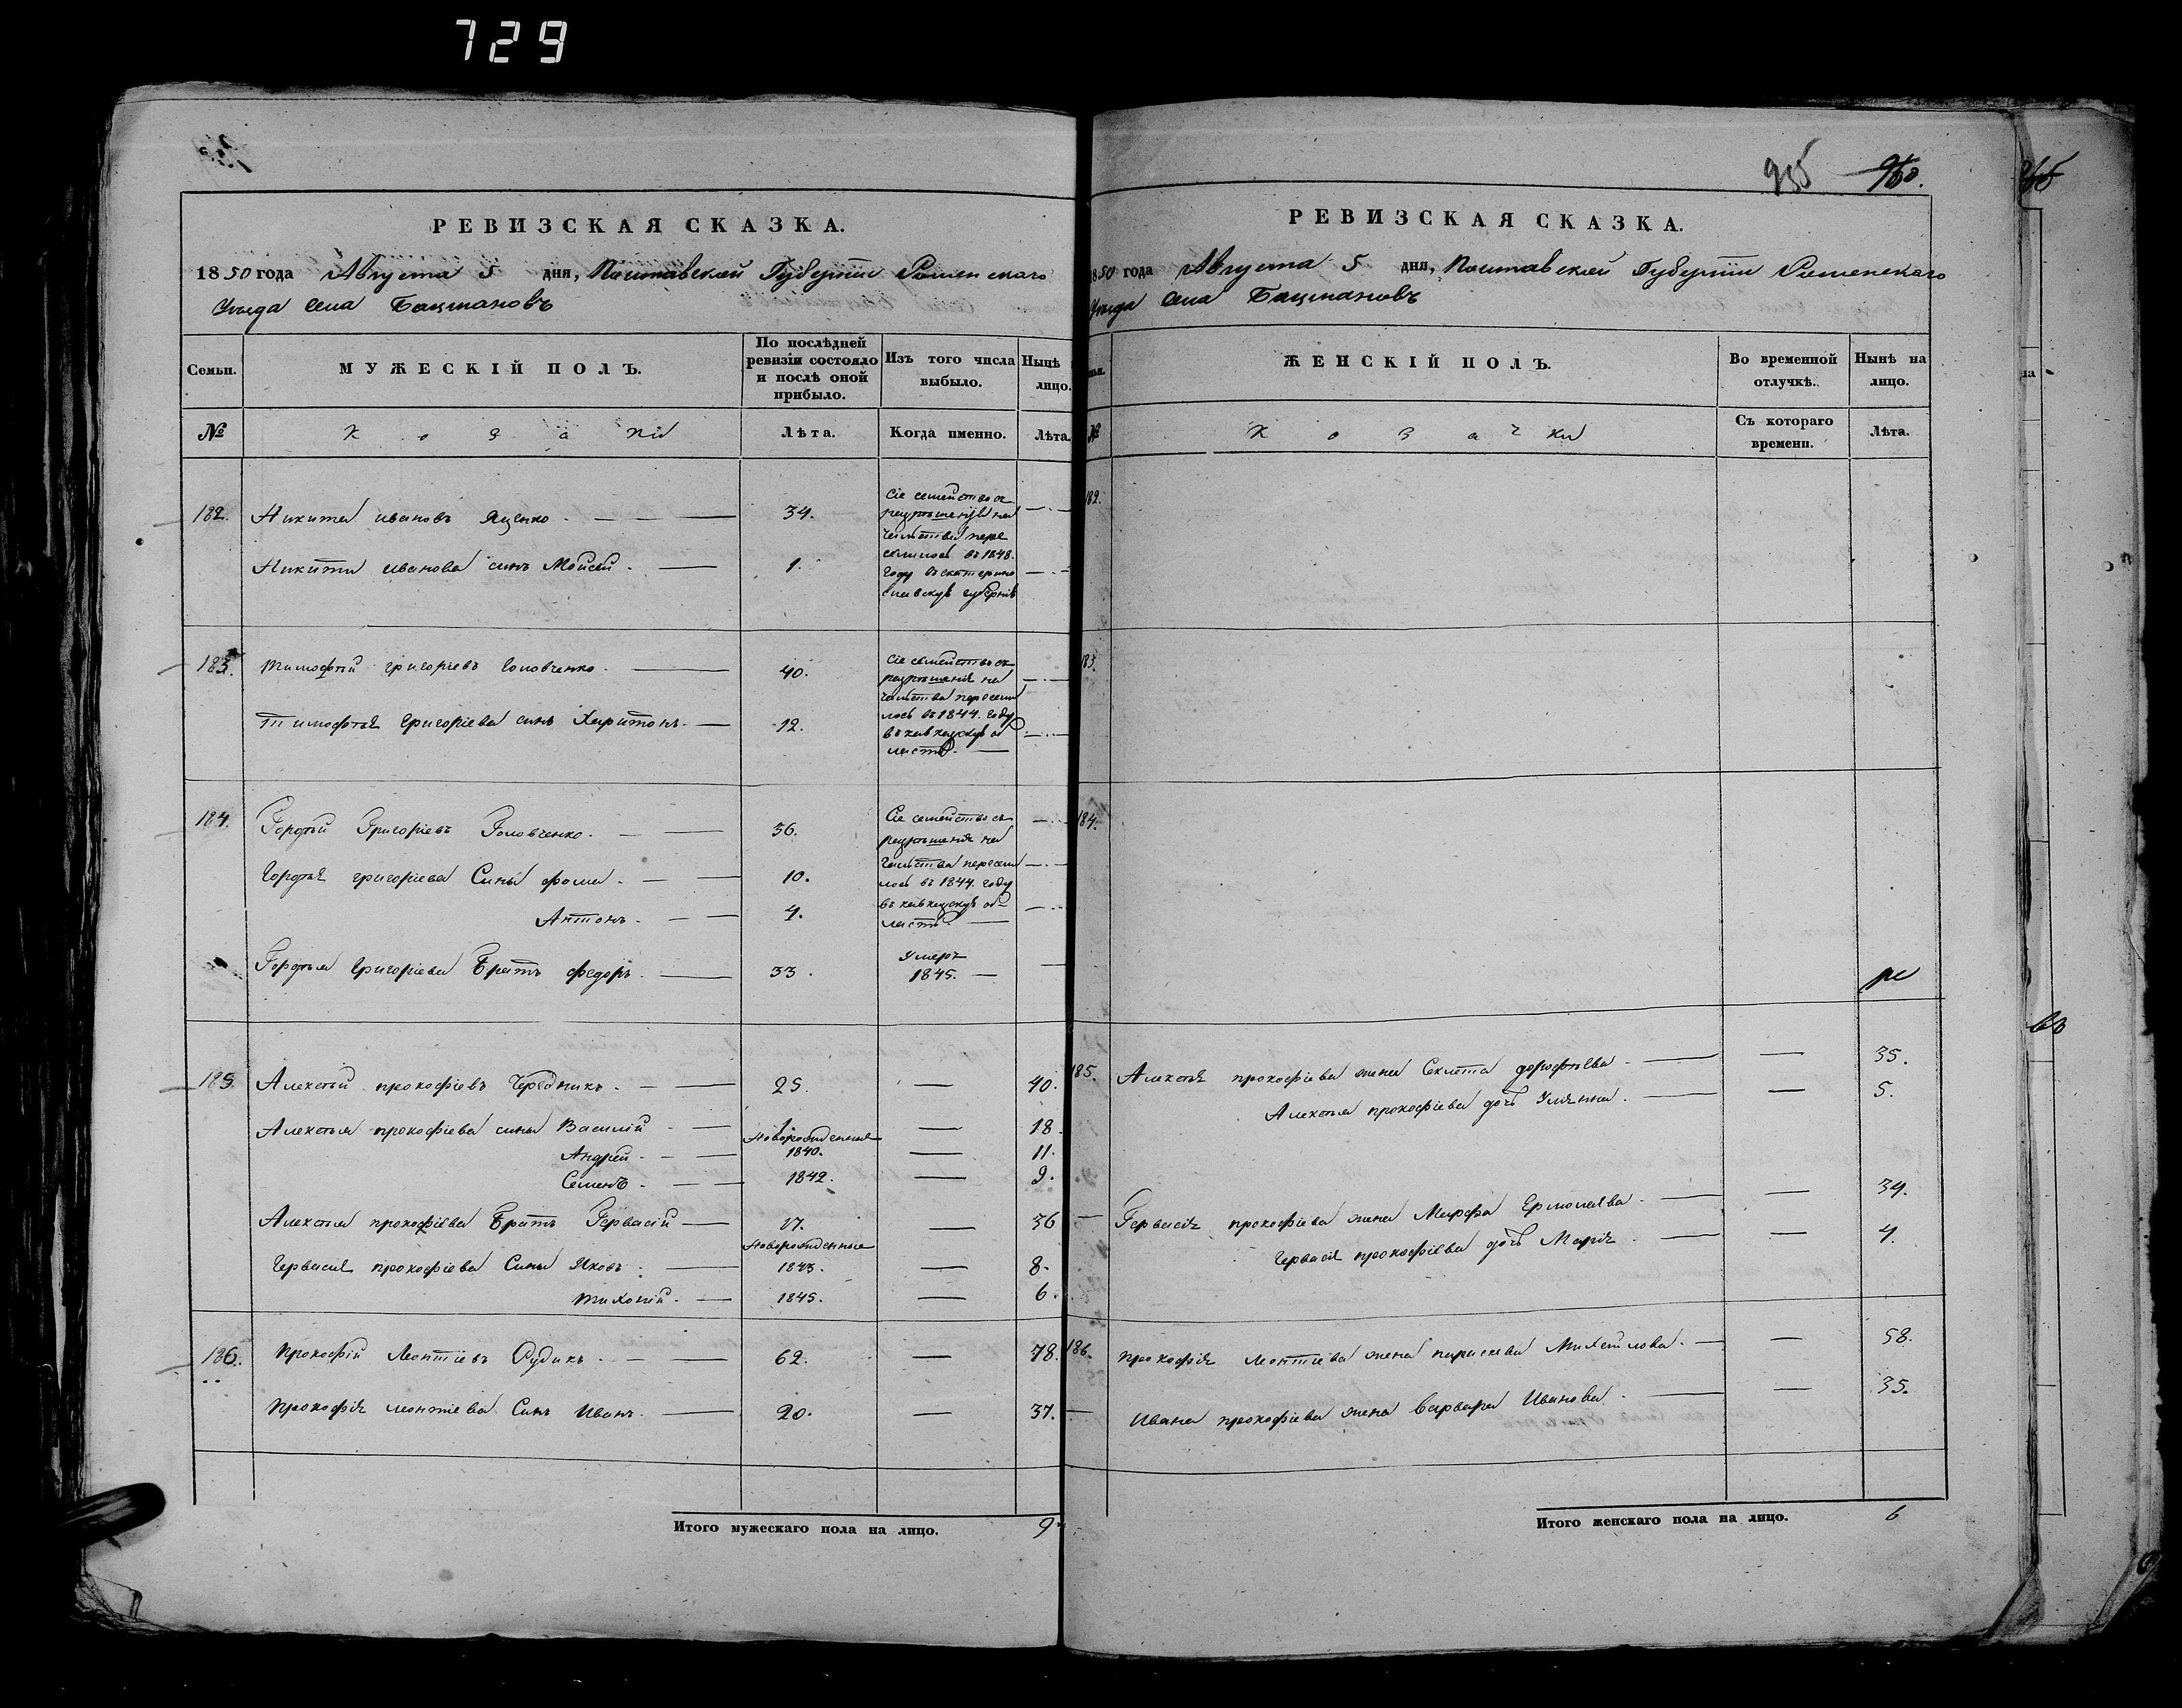 729
РЕВИЗСКАЯ СКАЗКА.
1850 года Августа 5 дня, Полтавской Губернии Роменскаго
Уезда села Бацмановъ
Семьи.
МУЖЕСКІЙ ПОЛЪ.
По послѣдней ревизіи состояло и послѣ оной прибыло.
Изъ того числа выбыло.
Нынѣ лицо.
№
Козаки
Лѣта.
Когда именно.
Лѣта.
182. Никита ивановъ Яценко. 34.
Никиты иванова сынъ Мойсей. 1.
Сіе семейство съ
разрѣшенія на
чальства пере
селилось въ 1848.
году въ екатерино
славскую губернію
183. Тимофѣй григорьевъ Головченко. 40.
Тимофѣя Григоріева сынъ Харитонъ. 12.
Сіе семейство съ
разрѣшенія на
чальства пересели
лось въ 1844. году
въ кавказскую об
ласть.
184. Гордѣй Григоріевъ Головченко. 36.
Гордѣя григоріева Сыны фома. 10.
Антонъ. 4.
Сіе семейство съ
разрѣшенія на
чальства пересели
лось въ 1844. году
въ кавказскую об
ласть
Гордѣя Григоріева Братъ федоръ. 33. Умеръ 1845.
185. Алексѣй прокофіевъ Чередникъ. 25. 40.
Алексѣя прокофіева сыны Василій Новорожденные 18
Андрей. 1840. 11.
Семенъ. 1842. 9.
Алексѣя прокофіева Братъ Гервасій 17. 36
Новорожденные
Гервасія прокофіева Сыны Яковъ. 1843. 8.
Тихоній. 1845. 6.
186. Прокофій Леонтіевъ Рудикъ. 62. 78.
Прокофія леонтіева Сынъ Иванъ. 20. 37.
Итого мужескаго пола на лицо. 9
935 960.
РЕВИЗСКАЯ СКАЗКА.
1850 года Августа 5 дня, Полтавской Губерніи Роменскаго
Уезда Села Бацмановъ
ЖЕНСКІЙ ПОЛЪ.
Во временной отлучкѣ.
Нынѣ на лицо.
№
Козачки
Съ котораго времени.
Лѣта.
182.
183.
184.
185. Алексѣя прокофіева жена Секлета дорофѣева. 35.
Алексѣя прокофіева дочь Ульяна. 5.
Гервасія прокофіева жена Марфа Ермолаева. 34.
Гервасія прокофіева дочь Марія. 4
186. Прокофія леонтіева жена параскева Михайлова. 58.
Ивана прокофіева жена Варвара Иванова. 35.
Итого женскаго пола на лицо. 6